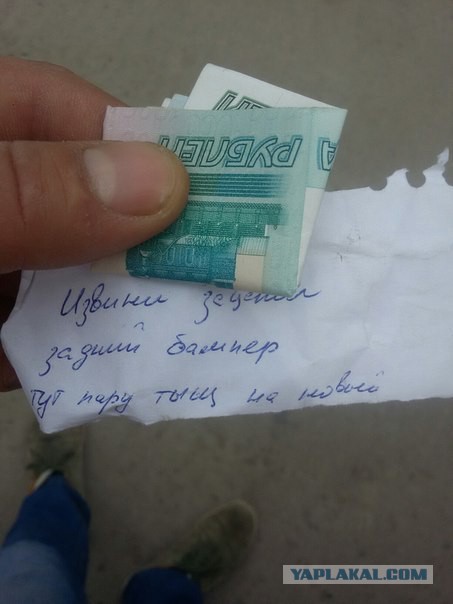 РУБЛЕЙ
Извини зацепил
задний бампер
тут пару тыщ на новый
YAPLAKAL.COM